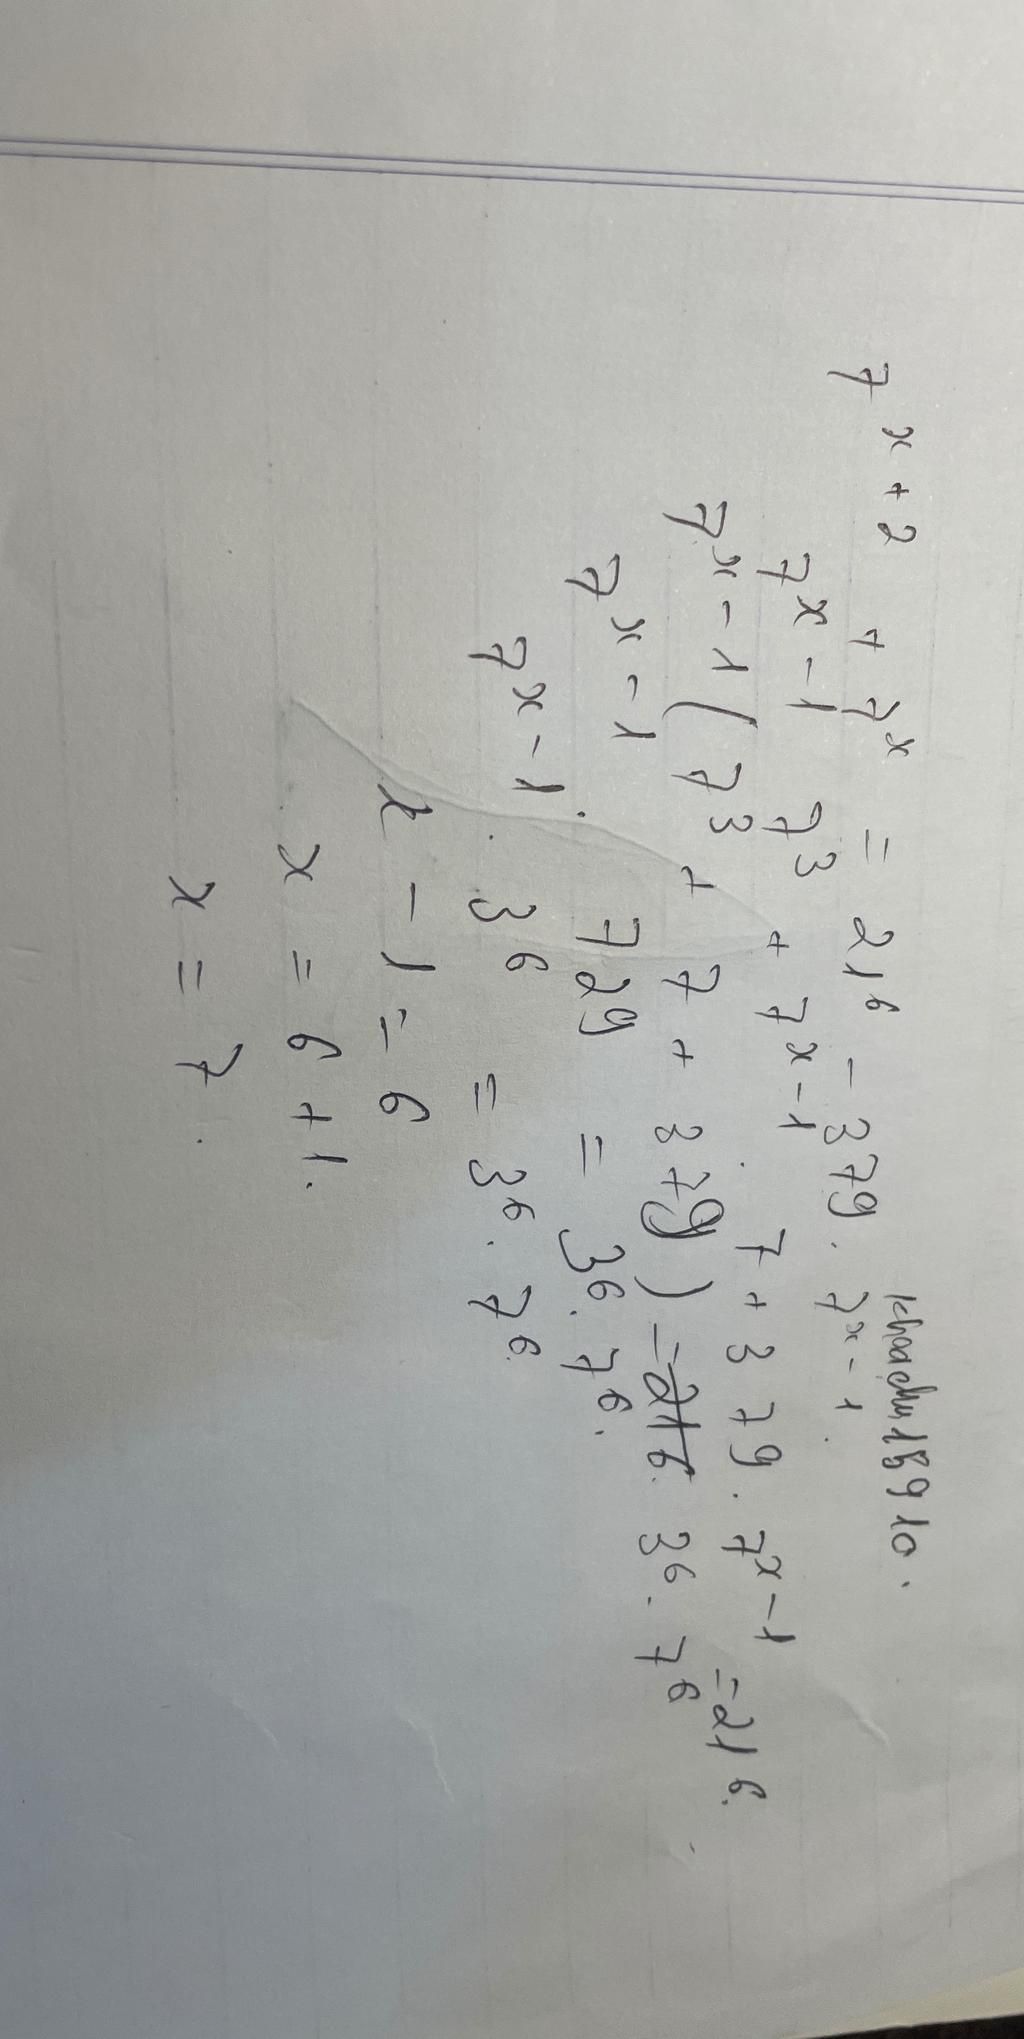 khoachu15910.
7^{x+2} + 7^x = 21^6 - 379 . 7^{x-1}.
7^{x-1} . 7^3 + 7^{x-1} . 7 + 379 . 7^{x-1} = 21^6.
7^{x-1} (7^3 + 7 + 379) = 3^6 . 7^6
7^{x-1} . 729 = 3^6 . 7^6.
7^{x-1} . 3^6 = 3^6 . 7^6.
x - 1 = 6
x = 6 + 1.
x = 7.